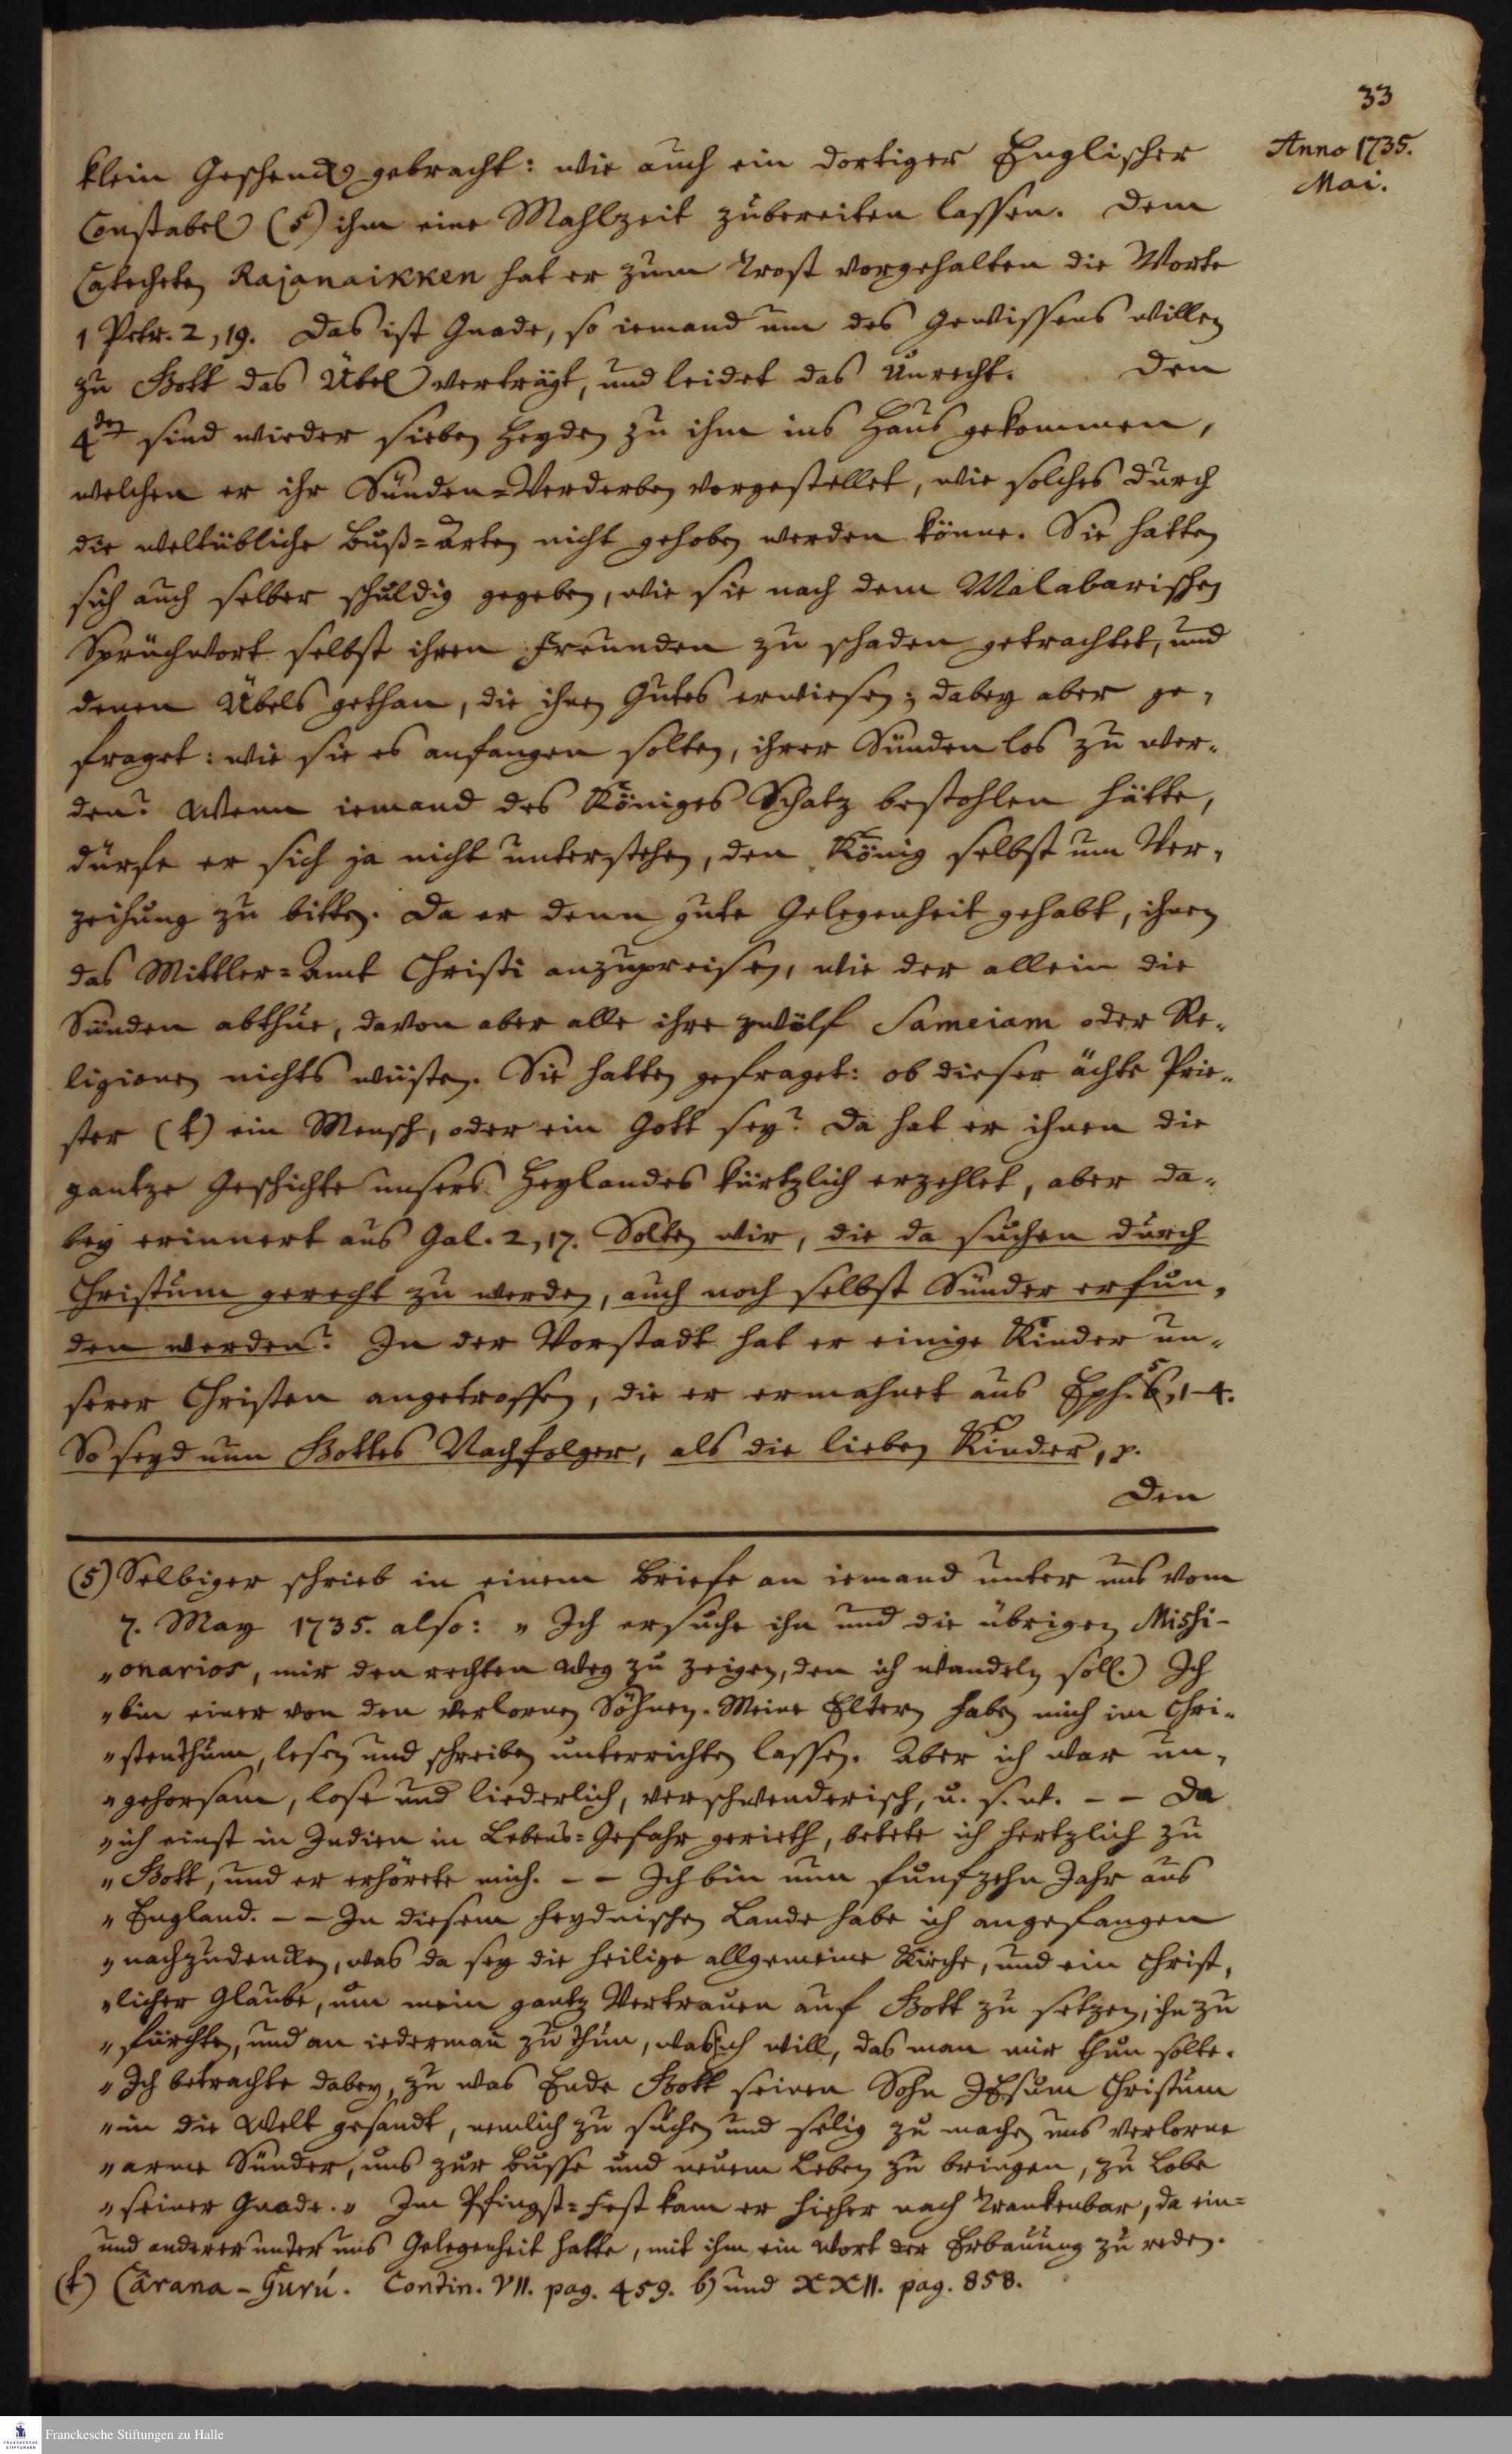 33
Anno 1735.
Mai.
klein Geschenck gebracht: wie auch ein dortiger Englischer
Constabel (s) ihm eine Mahlzeit zubereiten lassen. Dem
Catecheten Rajanaikken hat er zum Trost vorgehalten die Worte
1 Petr. 2, 19. Das ist Gnade, so iemand um des Gewissens willen
zu Gott das Übel verträgt, und leidet das Unrecht. Den
4den sind wieder sieben Heyden zu ihm ins Haus gekommen,
welchen er ihr Sünden-Verderben vorgestellet, wie solches durch
die weltübliche Buß-Arten nicht gehoben werden könne. Sie hatten
sich auch selber schuldig gegeben, wie sie nach dem Malabarischen
Sprüchwort selbst ihren Freunden zu schaden getrachtet, und
denen Übels gethan, die ihnen Gutes erwiesen; dabey aber ge-
fraget: wie sie es anfangen solten, ihrer Sünden los zu wer-
den? Wenn iemand des Königes Schatz bestohlen hätte,
dürfe er sich ja nicht unterstehen, den König selbst um Ver-
zeihung zu bitten. Da er denn gute Gelegenheit gehabt, ihnen
das Mittler-Amt Christi anzupreisen, wie der allein die
Sünden abthue, davon aber alle ihre zwölf Sameiam oder Re-
ligionen nichts wüsten. Sie hatten gefraget: ob dieser ächte Prie-
ster (t) ein Mensch, oder ein Gott sey? Da hat er ihnen die
gantze Geschichte unsers Heylandes kürtzlich erzehlet, aber da-
bey erinnert aus Gal. 2, 17. Solten wir, die da suchen durch
Christum gerecht zu werden, auch noch selbst Sünder erfun-
den werden? In der Vorstadt hat er einige Kinder un-
serer Christen angetroffen, die er ermahnet aus Eph. 5, 1-4.
So seyd nun Gottes Nachfolger, als die lieben Kinder, p.
Den
(s) Selbiger schrieb in einem Briefe an iemand unter uns vom
7. May 1735. also: „Ich ersuche ihn und die übrigen Missi-
„onarios, mir den rechten Weg zu zeigen, den ich wandeln soll. Ich
„bin einer von den verlornen Söhnen. Meine Eltern haben mich im Chri-
„stenthum, lesen und schreiben unterrichten lassen. Aber ich war un-
„gehorsam, lose und liederlich, verschwenderisch, u. s. w. - - Da
„ich einst in Indien in Lebens-Gefahr gerieth, betete ich hertzlich zu
„Gott, und er erhörete mich. - - Ich bin nun funfzehn Jahr aus
„England. - - In diesem heydnischen Lande habe ich angefangen
„nachzudencken, was da sey die heilige allgemeine Kirche, und ein Christ-
„licher Glaube, um mein gantz Vertrauen auf Gott zu setzen, ihn zu
„fürchten, und an iederman̄ zu thun, was ich will, das man mir thun solte.
„Ich betrachte dabey, zu was Ende Gott seinen Sohn JEsum Christum
„in die Welt gesandt, nemlich zu suchen und selig zu machen uns verlorne
„arme Sünder, uns zur Busse und neuem Leben zu bringen, zu Lobe
„seiner Gnade.„ Im Pfingst-Fest kam er hieher nach Trankenbar, da ein-
und anderer unter uns Gelegenheit hatte, mit ihm ein Wort der Erbauung zu reden.
(t) Cārana-Gurú. Contin. VII. pag. 459. b) und XXII. pag. 858.
Franckesche Stiftungen zu Halle